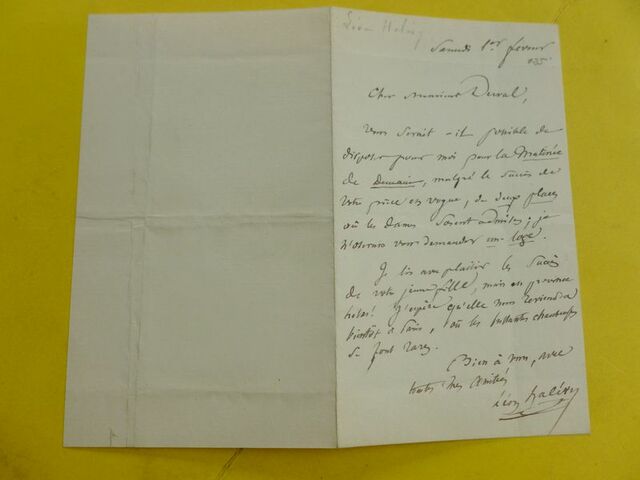 Léon Halévy
Samedi 1er février
Cher Monsieur Duval,
Vous serait-il possible de
disposer pour moi pour la Matinée
de Demain, malgré le succès de
votre pièce en vogue, de deux places
où les dames soient admises; je
n'oserais vous demander une loge.
Je lis avec plaisir les succès
de votre jeune fille, mais en province
hélas! J'espère qu'elle nous reviendra
bientôt à Paris, où les brillantes chanteuses
se font rares.
Bien à vous, avec
toutes mes amitiés
Léon Halévy